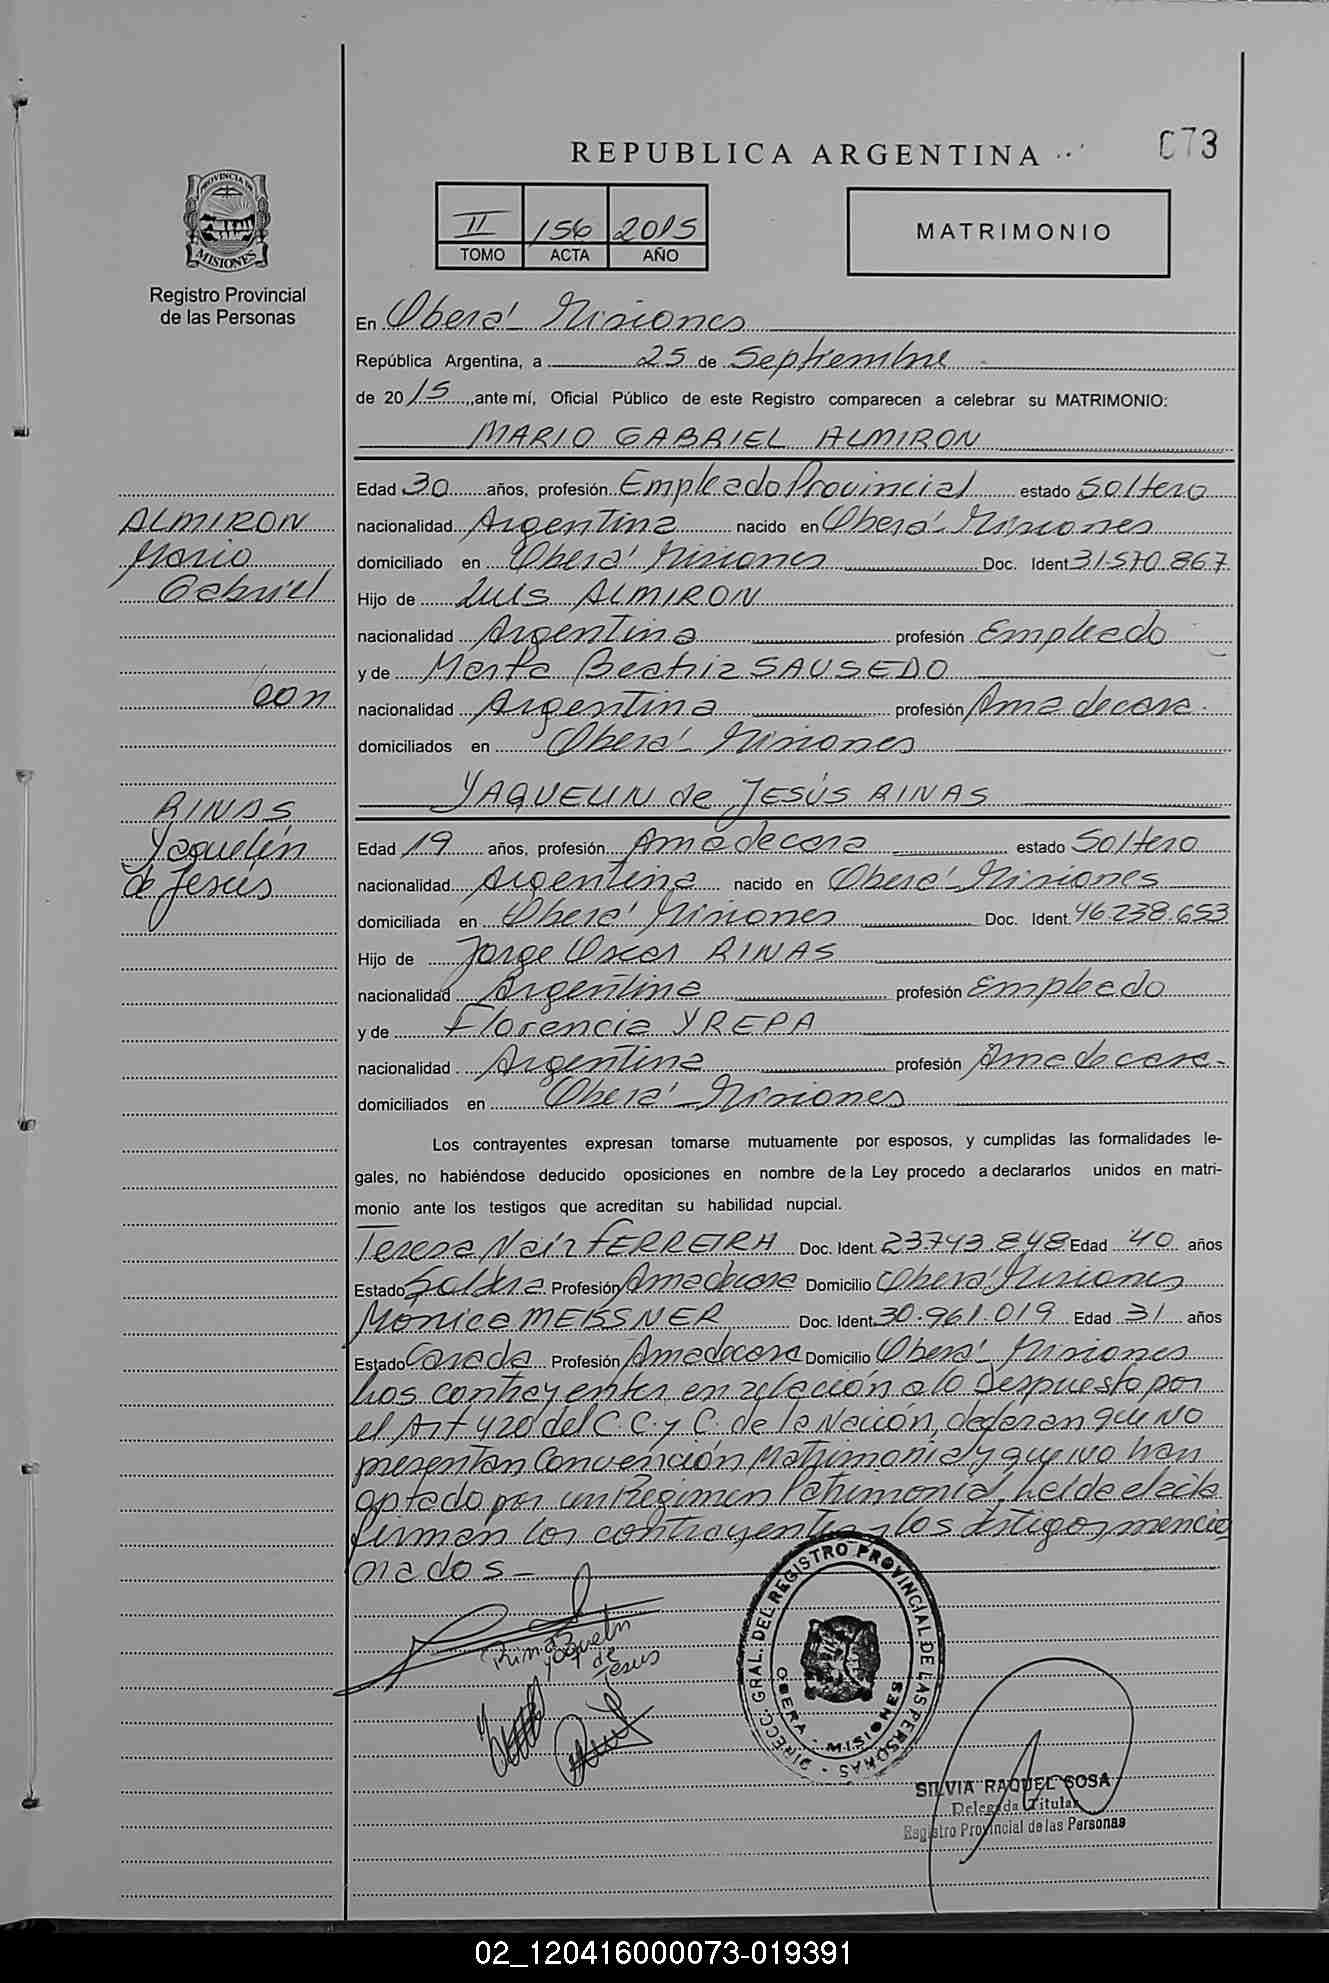 REPUBLICA ARGENTINA
073
PROVINCIA DE
MISIONES
Registro Provincial
de las Personas
II 156 2015
TOMO ACTA AÑO
MATRIMONIO
En Oberá - Misiones
República Argentina, a 25 de Septiembre
de 2015, ante mí, Oficial Público de este Registro comparecen a celebrar su MATRIMONIO:
MARIO GABRIEL ALMIRON
Edad 30 años, profesión Empleado Provincial estado Soltero
nacionalidad Argentina nacido en Oberá - Misiones
domiciliado en Oberá Misiones Doc. Ident 31.570.867
Hijo de Luis ALMIRON
nacionalidad Argentina profesión Empleado
y de Marta Beatriz SAUSEDO
nacionalidad Argentina profesión Ama de casa.
domiciliados en Oberá - Misiones
ALMIRON
Mario
Gabriel
con
RINAS
Yaquelín
de Jesús
YAQUELIN de JESÚS RINAS
Edad 19 años, profesión Ama de casa estado Soltero
nacionalidad Argentina nacido en Oberá - Misiones
domiciliada en Oberá Misiones Doc. Ident. 46.238.653
Hijo de Jorge Oscar RINAS
nacionalidad Argentina profesión Empleado
y de Florencia YREPA
nacionalidad Argentina profesión Ama de casa -
domiciliados en Oberá - Misiones
Los contrayentes expresan tomarse mutuamente por esposos, y cumplidas las formalidades le-
gales, no habiéndose deducido oposiciones en nombre de la Ley procedo a declararlos unidos en matri-
monio ante los testigos que acreditan su habilidad nupcial.
Teresa Nair FERREIRA Doc. Ident. 23.743.848 Edad 40 años
Estado Soltera Profesión Ama de casa Domicilio Oberá Misiones
Mónica MEISSNER Doc. Ident. 30.961.019 Edad 31 años
Estado Casada Profesión Ama de casa Domicilio Oberá - Misiones
Los contrayentes en relación a lo despuesto por
el Art 420 del C.C. y C. de la Nación, declaran que NO
presentan Convención Matrimonial y que NO han
optado por un Régimen Patrimonial, Leída el acta
firman los contrayentes y los testigos mencio
nados -
Rinas Yaquelin
de
Jesus
DIRECC. GRAL. DEL REGISTRO PROVINCIAL DE LAS PERSONAS -
OBERA - MISIONES
SILVIA RAQUEL SOSA
Delegada Titular
Registro Provincial de las Personas
02_120416000073-019391